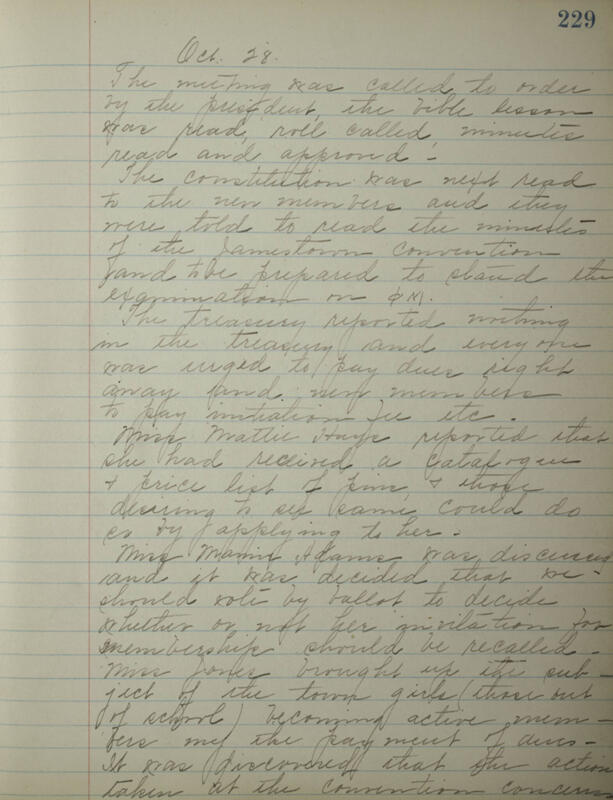 229
Oct. 28.
The meeting was called to order
by the president, the bible lesson
was read, roll called, minutes
read and approved.
The constitution was next read
to the new members and they
were told to read the minutes
of the Jamestown Convention
and to be prepared to stand the
examination on
The treasury reported nothing
in the treasury and everyone
was urged to pay dues right
away and new members
to pay initiation fee etc.
Miss Mattie Hays reported that
she had received a catalogue
& price list of pins, & those
desiring to see same could do
so by applying to her.
Miss Mamie Adams was discussed
and it was decided that we
should vote by ballot to decide
whether or not her invitation for
membership should be recalled.
Miss Jones brought up the sub-
ject of the town girls (those out
of school) becoming active mem-
bers the payment of dues -
It was discovered that the action
taken at the convention